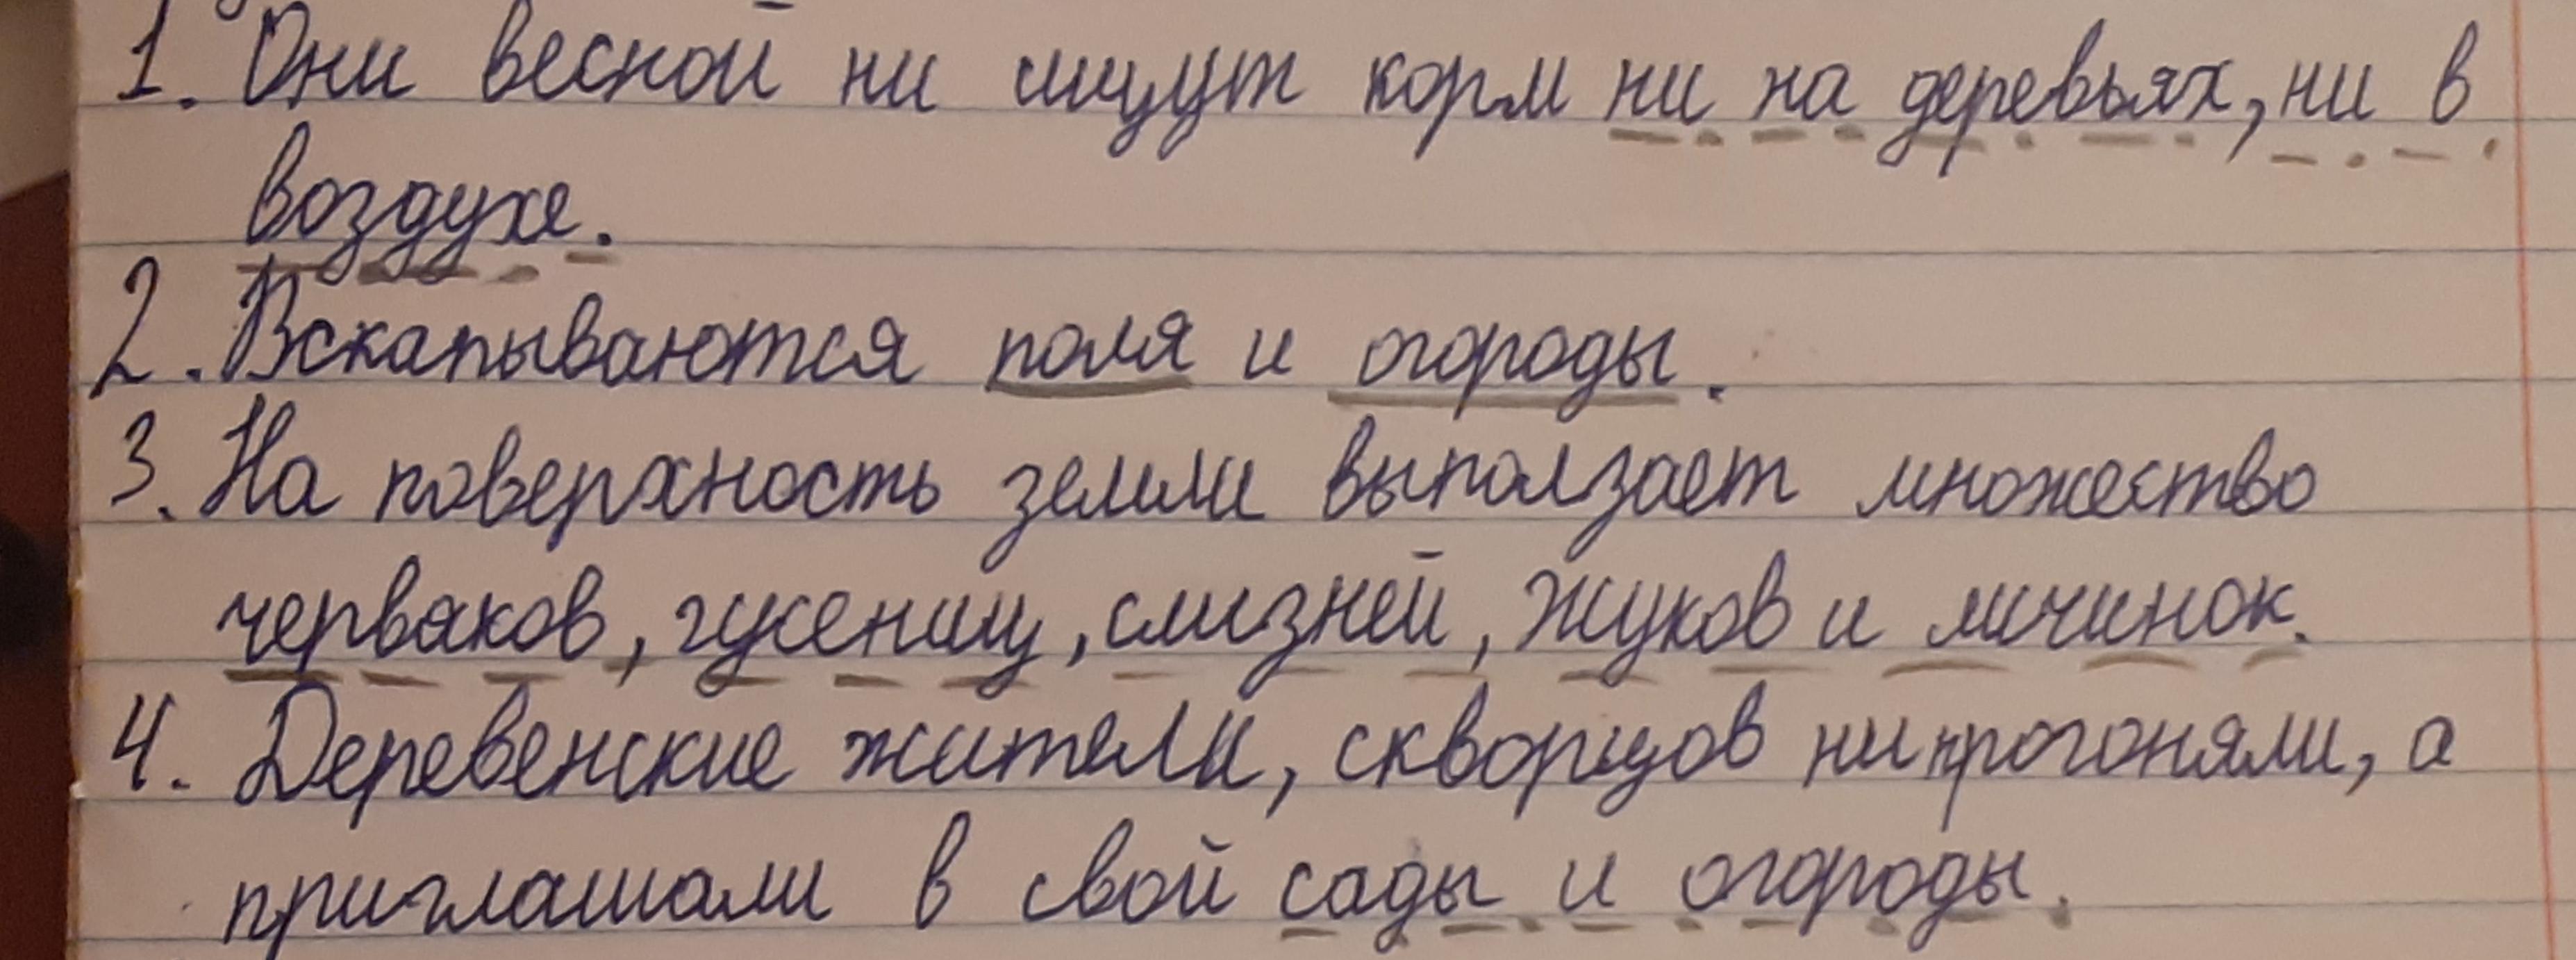 1. Они весной ни ищут корм ни на деревьях, ни в
воздухе.
2. Вскапываются поля и огороды.
3. На поверхность земли выползает множество
червяков, гусениц, слизней, жуков и личинок.
4. Деревенские жители, скворцов ни прогоняли, а
приглашали в свой сады и огороды.